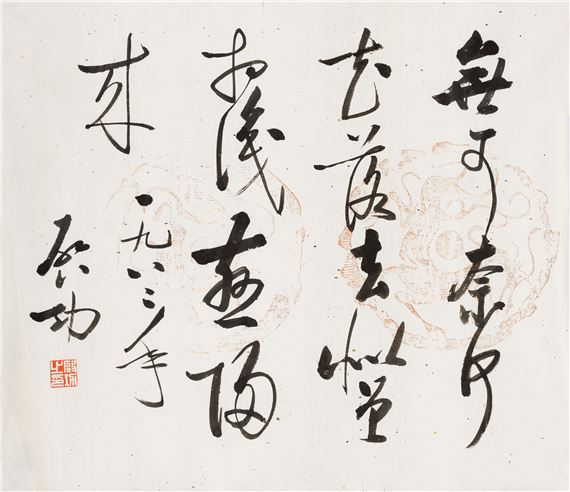 無可奈何
花落去似曾
相識燕歸
来
一九八三年
启功